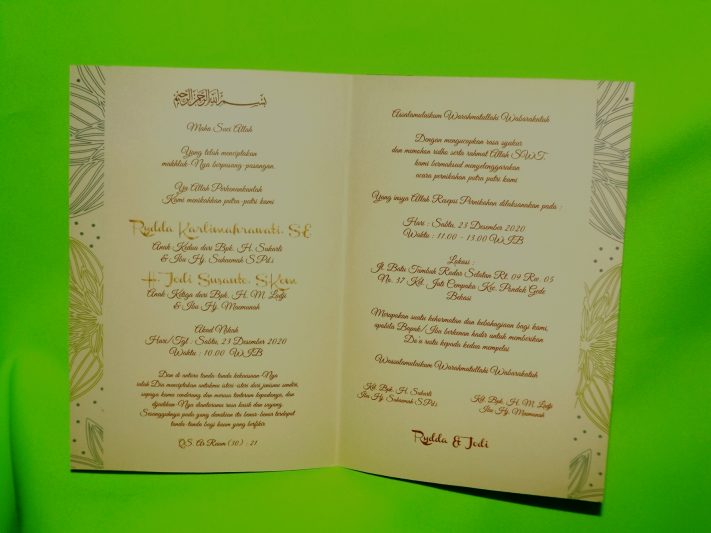 بسم الله الرحمن الرحيم
Maha Suci Allah
Yang telah menciptakan
makhluk-Nya berpasang-pasangan.
Ya Allah Perkenankanlah
Kami menikahkan putra-putri kami
Rydda Kartimahrawati. SE
Anak Kedua dari Bpk. H. Sukarti
& Ibu Hj. Sukaemah S.Pd.i
H. Jodi Susanto. SKom
Anak Ketiga dari Bpk. H. M. Ladjo
& Ibu Hj. Maemunah
Akad Nikah
Hari/Tgl : Sabtu, 23 Desember 2020
Waktu : 10.00 WIB
Dan di antara tanda-tanda kekuasaan-Nya
ialah Dia menciptakan untukmu isteri-isteri dari jenismu sendiri,
supaya kamu cenderung dan merasa tenteram kepadanya, dan
dijadikan-Nya diantaramu rasa kasih dan sayang.
Sesungguhnya pada yang demikian itu benar-benar terdapat
tanda-tanda bagi kaum yang berfikir
Q.S. Ar Ruum (30) : 21
Assalamulaikum Warahmatallahi Wabarakatuh
Dengan mengucapkan rasa syukur
dan memohon ridho serta rahmat Allah SWT.
kami bermaksud menyelenggarakan
acara pernikahan putra putri kami
Yang insya Allah Resepsi Pernikahan dilaksanakan pada :
Hari : Sabtu, 23 Desember 2020
Waktu : 11.00 - 13.00 WIB
Lokasi :
Jl. Batu Tumbuk Radar Selatan Rt. 09 Rw. 05
No. 37 Kel. Jati Cempaka Kec. Pondok Gede
Bekasi
Merupakan suatu kehormatan dan kebahagiaan bagi kami,
apabila Bapak/Ibu berkenan hadir untuk memberikan
Do'a restu kepada kedua mempelai
Wassalamulaikum Warahmatullahi Wabarakatuh
Kel. Bpk. H. Sukarti
Ibu Hj. Sukaemah S.Pd.i
Kel. Bpk. H. M. Ladjo
Ibu Hj. Maemunah
Rydda & Jodi